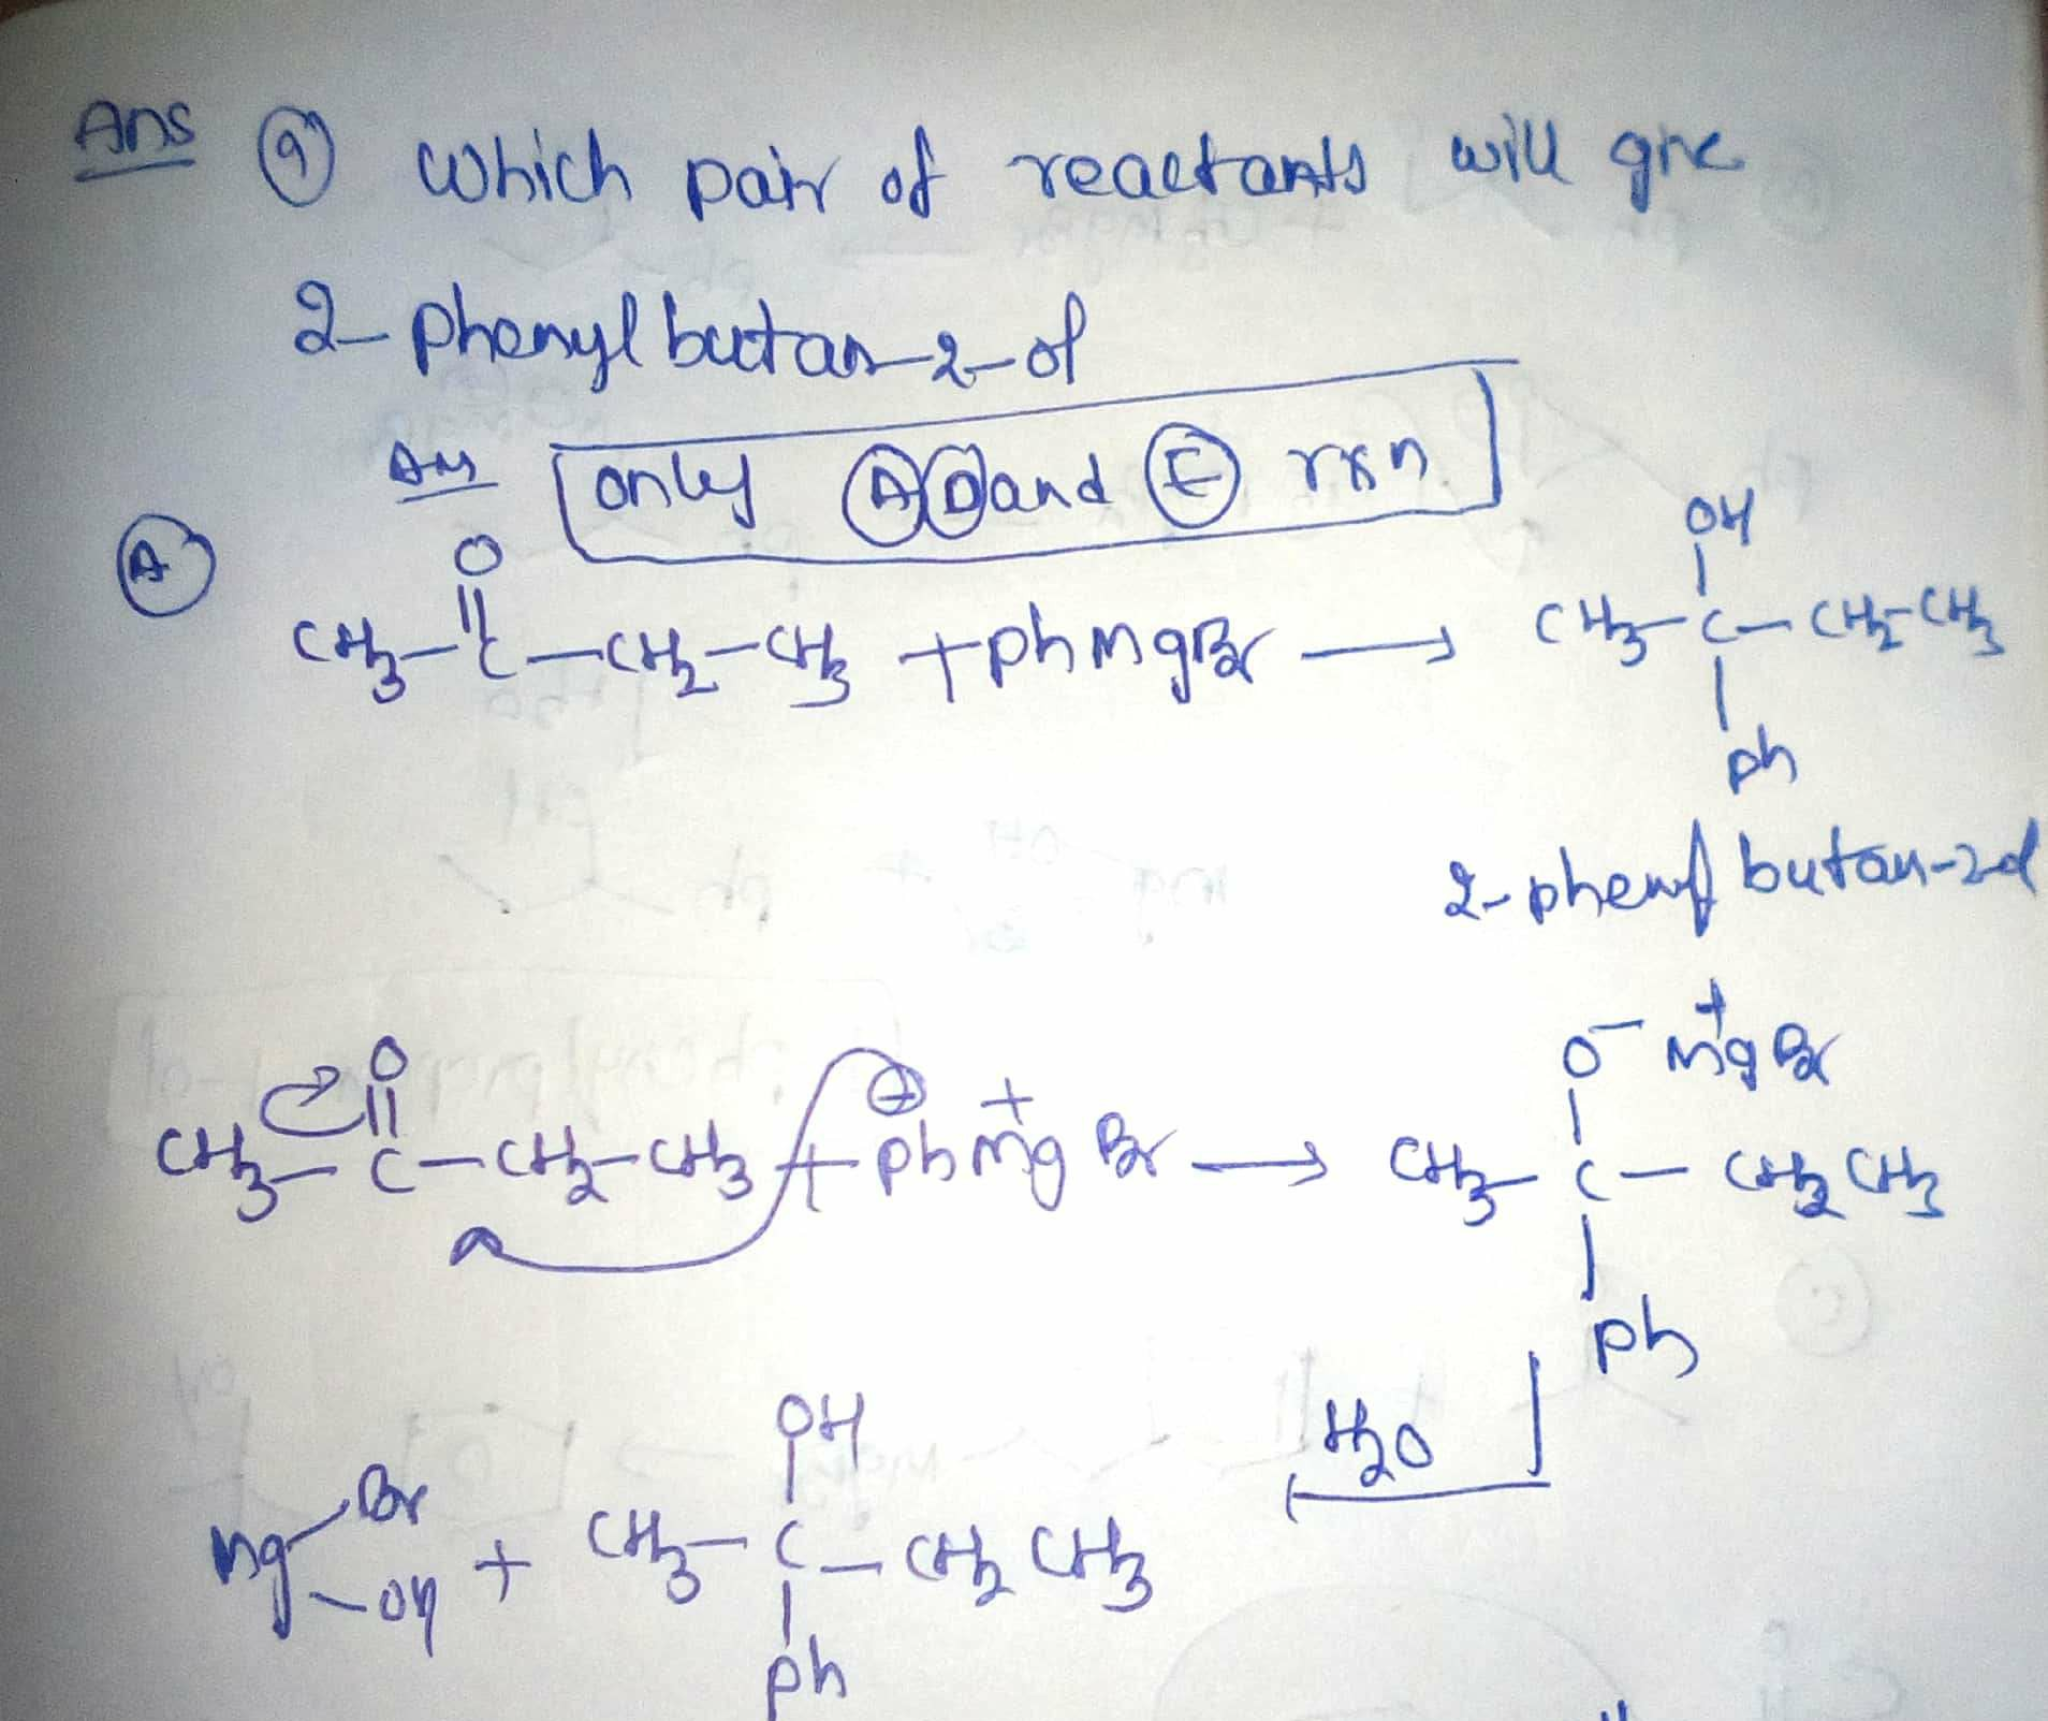 Ans ⑨ which pair of reactants will give
2-phenyl butan-2-ol
Ans only Ⓐ Ⓓ and Ⓔ rxn
Ⓐ
O
CH3-C-CH2-CH3 + ph mgBr →
OH
CH3-C-CH2-CH3
ph
2-phenyl butan-2ol
O
CH3-C-CH2-CH3 + ph mg+ Br →
O- mg+ Br
CH3-C-CH2CH3
ph
H2O
Mg Br OH +
OH
CH3-C-CH2CH3
ph